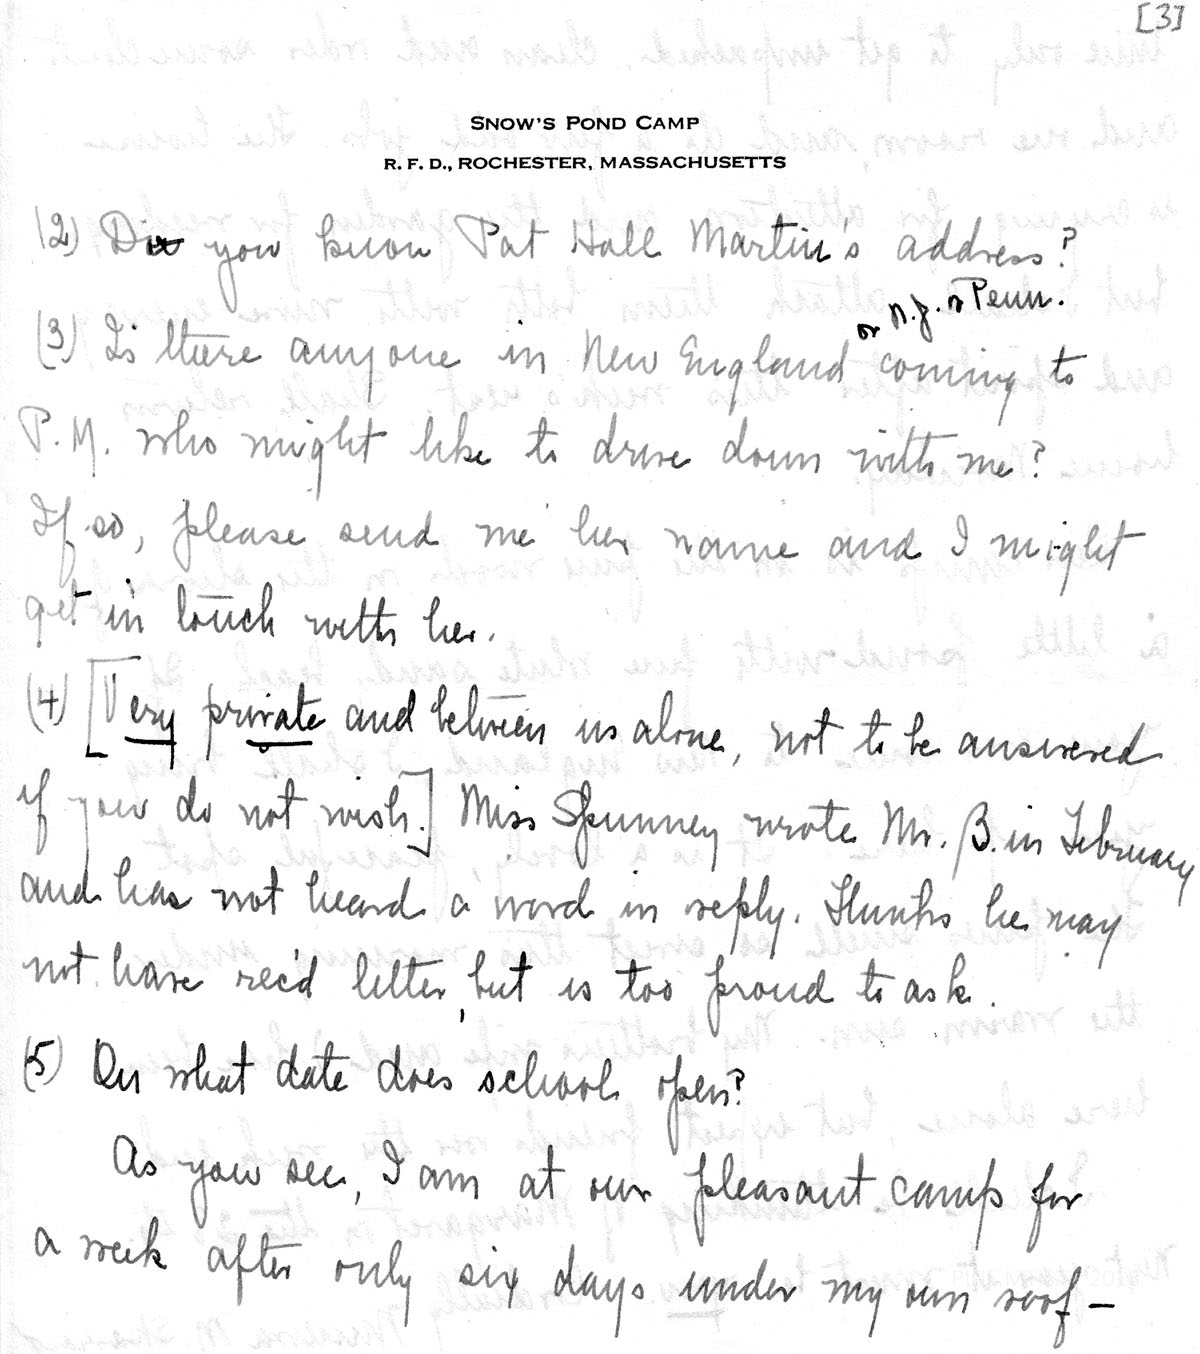 [3]
SNOW'S POND CAMP
R. F. D., ROCHESTER, MASSACHUSETTS
(2) Do you know Pat Hall Martin's address?
or N.J. or Penn.
(3) Is there anyone in New England coming to
P.M. who might like to drive down with me?
If so, please send me her name and I might
get in touch with her.
(4) [Very private and between us alone, not to be answered
if you do not wish.] Miss Spunney wrote Mr. B. in February
and has not heard a word in reply. Thinks he may
not have rec'd letter, but is too proud to ask.
(5) On what date does school open?
As you see, I am at our pleasant camp for
a week after only six days under my own roof –